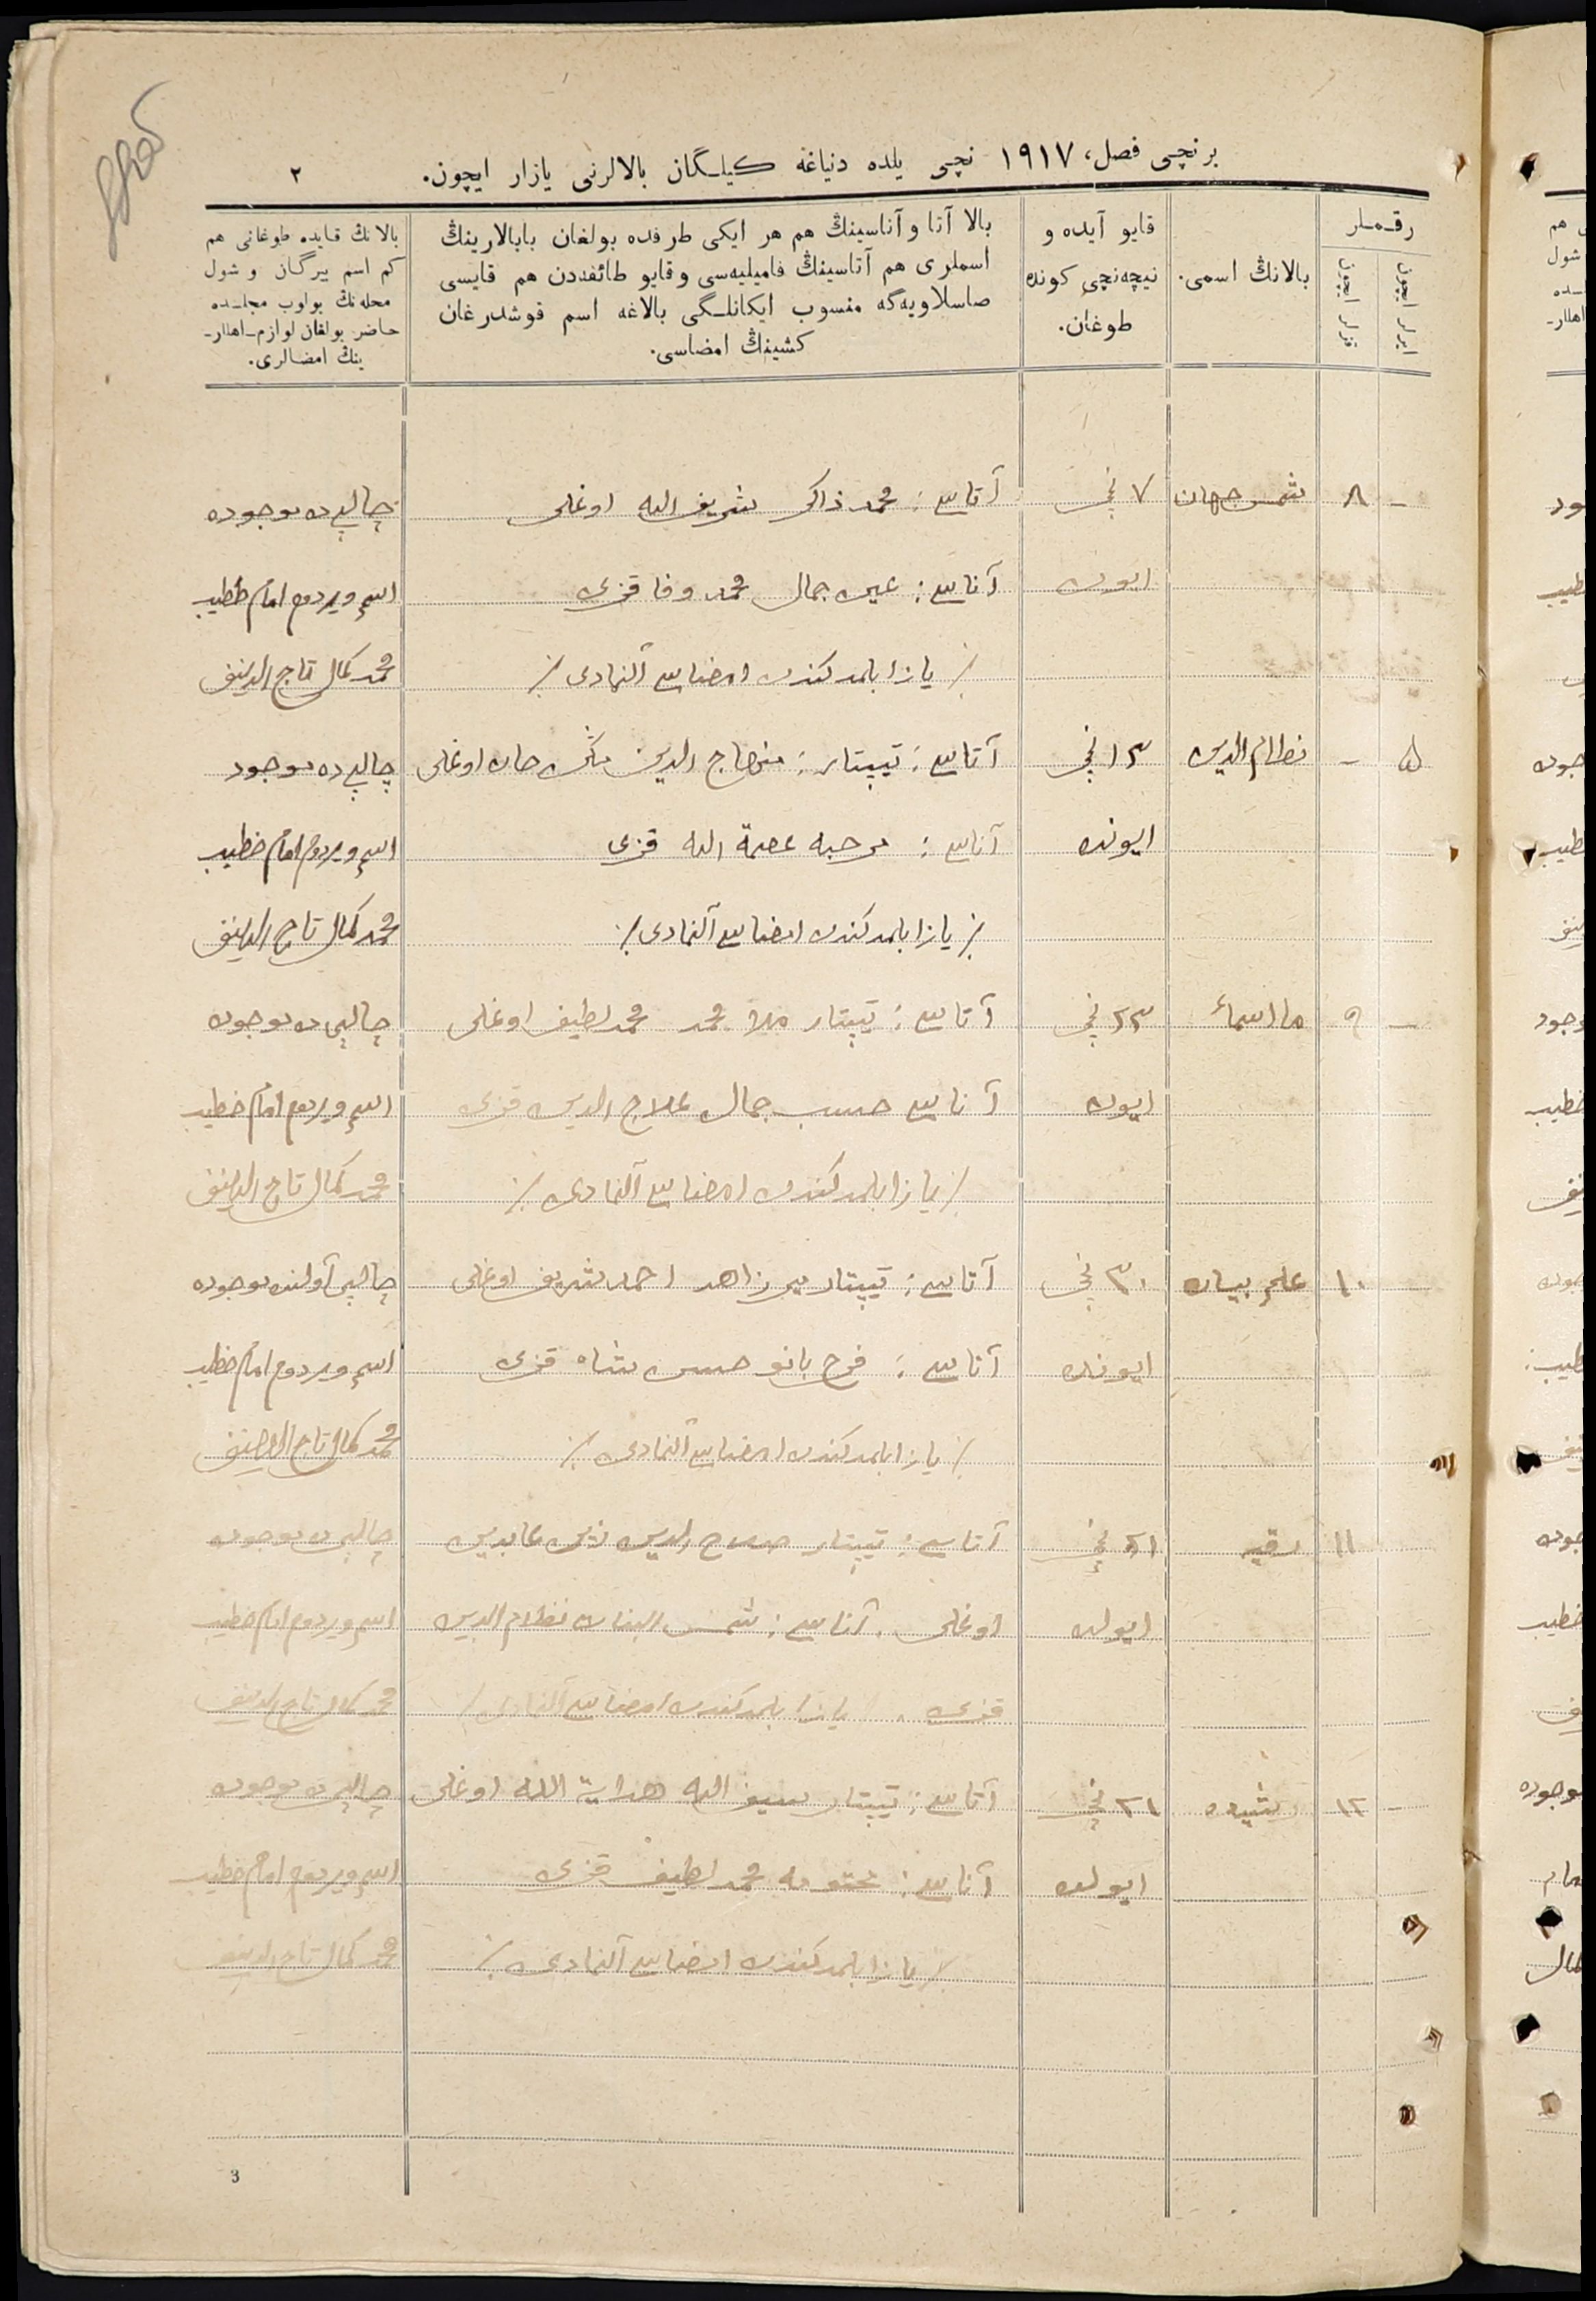 برنچی فصل، ١٩١٧ نچی یلده دنیاغه کیلـگان بالالرنی یازار ایچون. ٢
رقـمـلر
ایرلر ایچون
قزلر ایچون
بالانڭ اسمی.
قایو آیده و
نیچه‌نچی کونده
طوغان.
بالا آتا و آناسینڭ هم هر ایکی طرفده بولغان بابالارینڭ
اسملری هم آتاسینڭ فامیلیه‌سی و قایو طائفه‌دن هم قایسی
صاسلاویه‌گه منسوب ایکانلـگی بالاغه اسم قوشدرغان
کشینڭ امضاسی.
بالانڭ قایده طوغانی هم
کم اسم بیرگان و شول
محله‌نڭ بولوب مجلـده
حاضر بولغان لوازم-اهللر-
ینڭ امضالری.
- ٨ شمس جهان ٧ نچی آتاسی: محمد ذاکر شریف الله اوغلی چالپی ده موجوده
ایون آناسی: عین جمال محمد وفا قزی اسم ویردوم امام خطیب
٪ یازا بلمدکندن امضاسی آلنمادی ٪ محمد کمال تاج الدینف
۵ - نظام الدین ١٣ نچی آتاسی: تیپتار: منهاج الدین حان اوغلی چالپی ده موجود
ایونده آناسی: مرحبه عصمة الله قزی اسم ویردوم امام خطیب
٪ یازا بلمدکندن امضاسی آلنمادی ٪ محمد کمال تاج الدینف
- ٩ ما اسماء ٢٣ نچی آتاسی: تیپتار ملا محمد محمد لطیف اوغلی چالپی ده موجوده
ایون آناسی حبیب جمال علاج الدین قزی اسم ویردوم امام خطیب
٪ یازا بلمدکندن امضاسی آلنمادی ٪ محمد کمال تاج الدینف
١٠ علم بیان ٣٠ نچی آتاسی: تیپتار میرزاهد احمد شریف اوغلی چالپی آولنده موجوده
ایونده آناسی: فرح بانو حسن شاه قزی اسم ویردوم امام خطیب
٪ یازا بلمدکندن امضاسی آلنمادی ٪ محمد کمال تاج الدینف
١١ رقیه ٢١ نچی آتاسی: تیپتار صلاح الدین زین عابدین چالپی ده موجوده
ایولده اوغلی. آناسی: شمس البنات نظام الدین اسم ویردوم امام خطیب
قزی. یازا بلمدکندن امضاسی آلنمادی / محمد کمال تاج الدینف
- ١٢ رشیده ٢١ نچی آتاسی: تیپتار سیف الله هدایة الله اوغلی چالپی ده موجوده
ایولده آناسی: محتومه محمد لطیف قزی اسم ویردوم امام خطیب
٪ یازا بلمدکندن امضاسی آلنمادی ٪ محمد کمال تاج الدینف
3